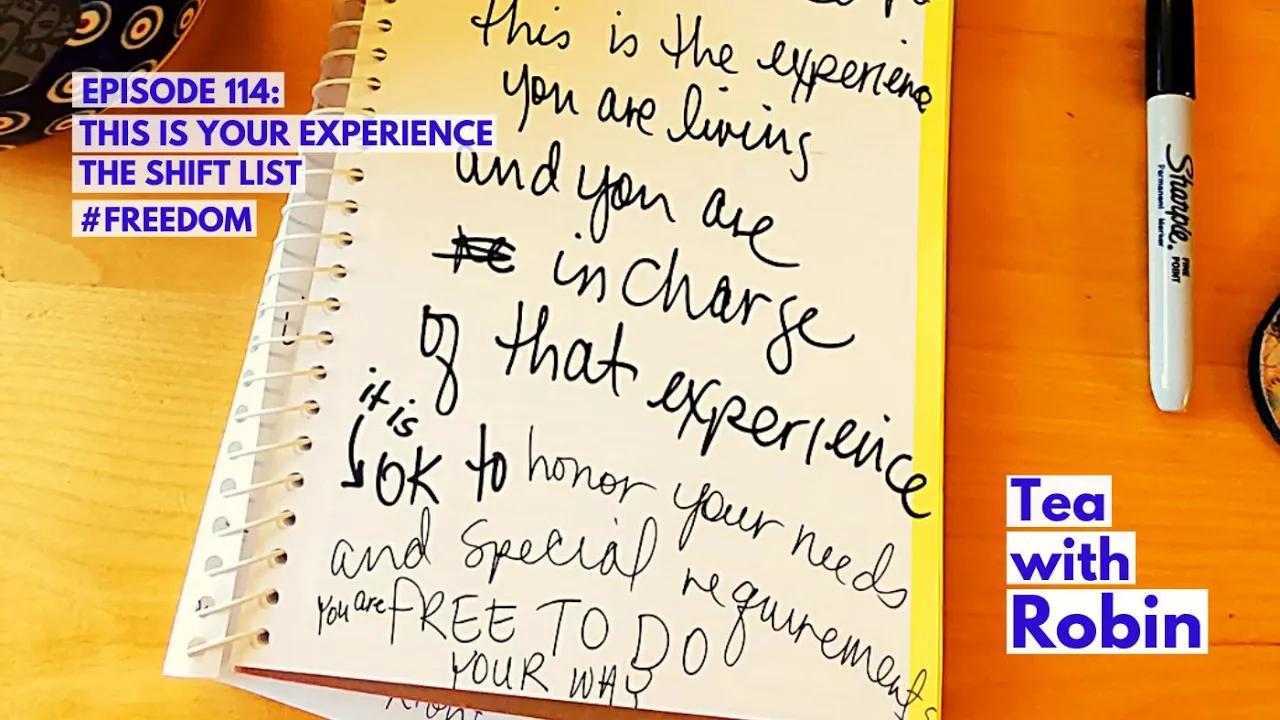 EPISODE 114:
THIS IS YOUR EXPERIENCE
THE SHIFT LIST
#FREEDOM
this is the experience
you are living
and you are
in charge
of that experience
it is
OK to honor your needs
and special requirements
You are FREE TO DO
YOUR WAY
Sharpie.
FINE POINT
Permanent Marker
Tea
with
Robin